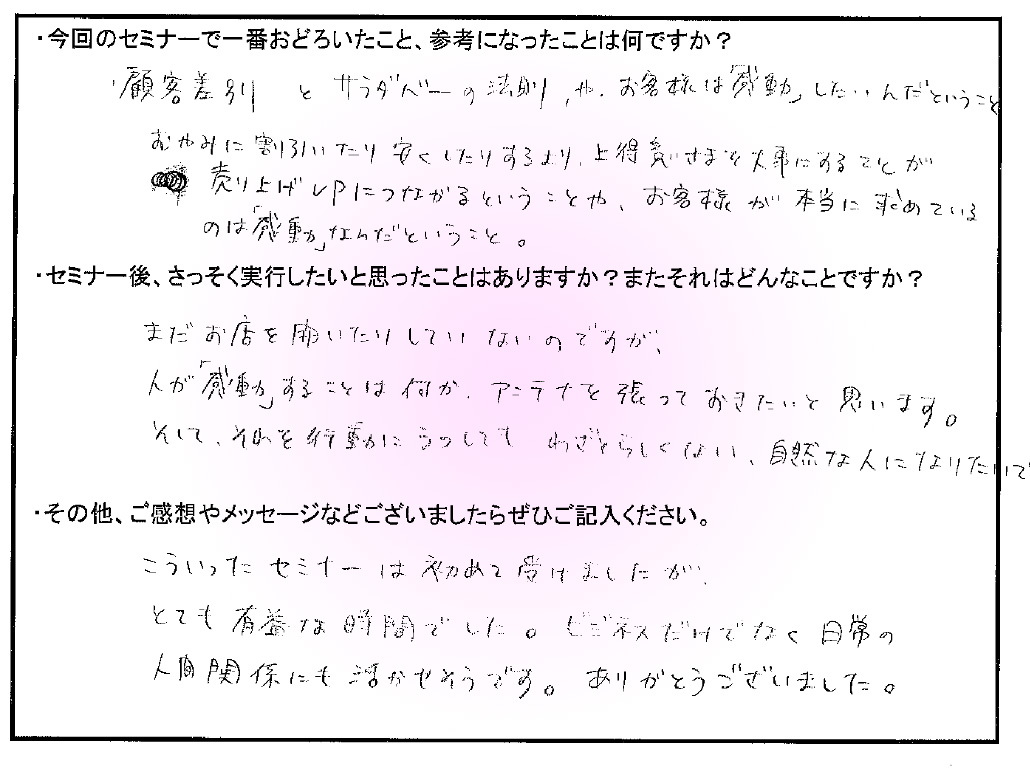 ・今回のセミナーで一番おどろいたこと、参考になったことは何ですか？
・顧客差別 と サラダバーの法則、や、お客様は「感動」したいんだということ
むやみに割引いたり安くしたりするより、上得意さまを大事にすることが
売り上げUPにつながるということや、お客様が本当に求めている
のは「感動」なんだということ。
・セミナー後、さっそく実行したいと思ったことはありますか？またそれはどんなことですか？
まだお店を開いたりしていないのですが、
人が「感動」することは何か、アンテナを張っておきたいと思います。
そして、それを行動にうつしても わざとらしくない、自然な人になりたいで
・その他、ご感想やメッセージなどございましたらぜひご記入ください。
こういったセミナーは初めて受けましたが、
とても有益な時間でした。ビジネスだけでなく日常の
人間関係にも活かせそうです。ありがとうございました。